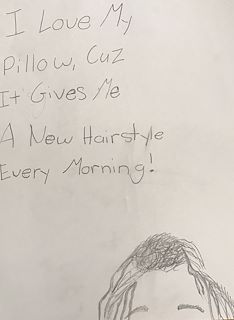 I Love My
Pillow, Cuz
It Gives Me
A New Hairstyle
Every Morning!